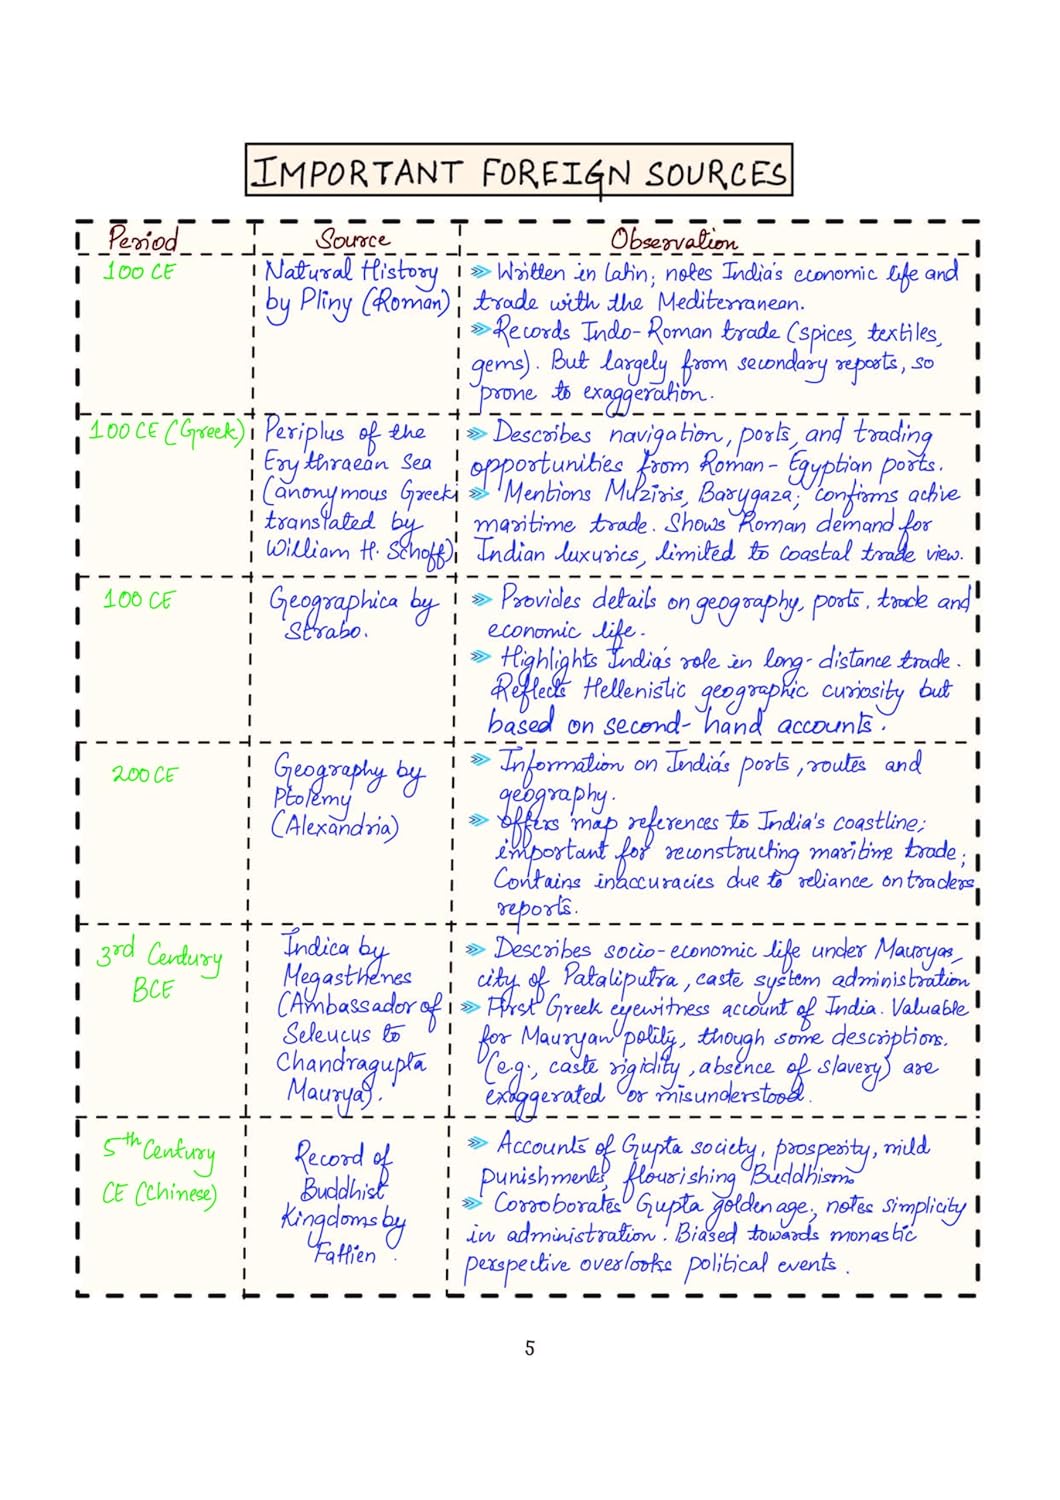 IMPORTANT FOREIGN SOURCES
Period Source Observation
100 CE
Natural History
by Pliny (Roman)
⋙ Written in Latin; notes India's economic life and
trade with the Mediterranean.
⋙ Records Indo-Roman trade (spices, textiles,
gems). But largely from secondary reports, so
prone to exaggeration.
100 CE (Greek)
Periplus of the
Erythraean Sea
(anonymous Greek
translated by
William H. Schoff)
⋙ Describes navigation, ports, and trading
opportunities from Roman-Egyptian ports.
⋙ Mentions Muziris, Barygaza; confirms active
maritime trade. Shows Roman demand for
Indian luxuries, limited to coastal trade view.
100 CE
Geographica by
Strabo.
⋙ Provides details on geography, ports, trade and
economic life.
⋙ Highlights India's role in long-distance trade.
Reflects Hellenistic geographic curiosity but
based on second-hand accounts.
200 CE
Geography by
Ptolemy
(Alexandria)
⋙ Information on India's ports, routes and
geography.
⋙ Offers map references to India's coastline;
important for reconstructing maritime trade;
Contains inaccuracies due to reliance on traders
reports.
3rd Century
BCE
Indica by
Megasthenes
(Ambassador of
Seleucus to
Chandragupta
Maurya).
⋙ Describes socio-economic life under Mauryas,
city of Pataliputra, caste system administration
⋙ First Greek eyewitness account of India. Valuable
for Mauryan polity, though some descriptions.
(e.g., caste rigidity, absence of slavery) are
exaggerated or misunderstood.
5th Century
CE (Chinese)
Record of
Buddhist
Kingdoms by
Fahien.
⋙ Accounts of Gupta society, prosperity, mild
punishments, flourishing Buddhism
⋙ Corroborates Gupta golden age; notes simplicity
in administration. Biased towards monastic
perspective overlooks political events.
5